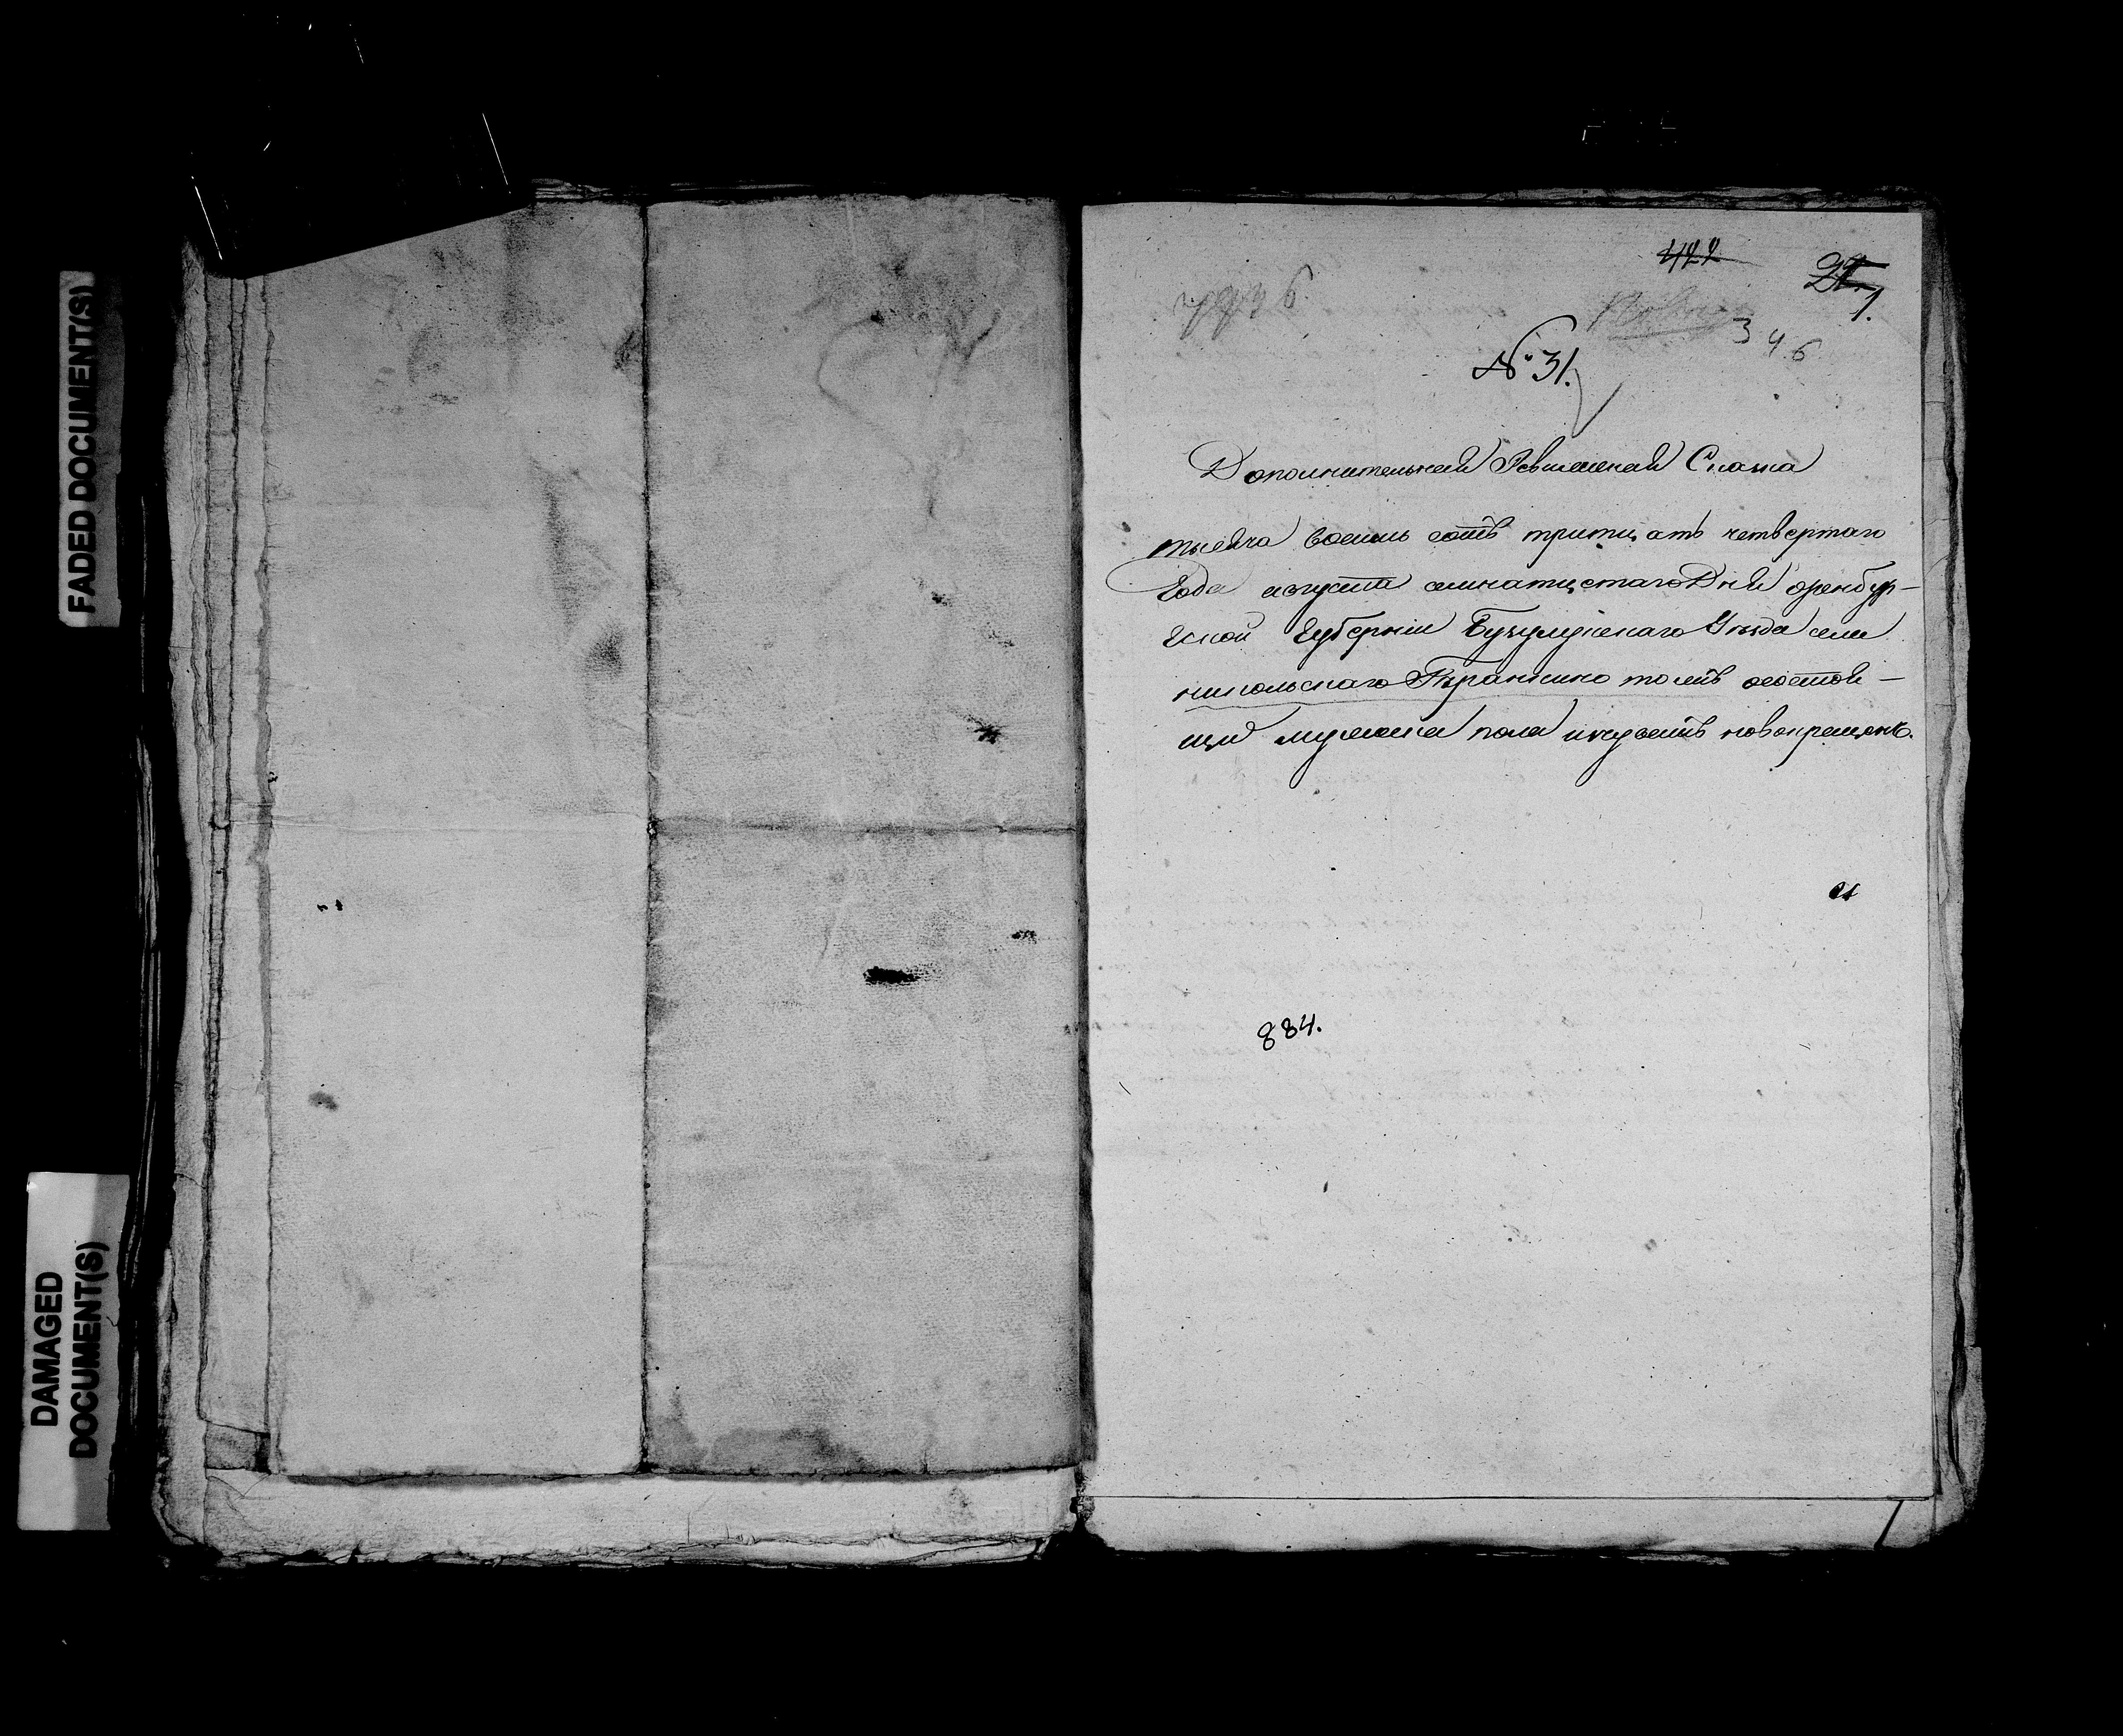 FADED DOCUMENT(S)
DAMAGED
DOCUMENT(S)
422
1.
346
№ 31.
Дополнительная Ревизская Сказка
тысяча восемь сотъ тритцать четвертаго
Года августа семнатцетаго Дня оренбур-
гской Губерніи Бузулуцкаго Уезда села
никольскаго тожъ состоя-
щи мужеска пола изчувашъ новокрещенъ.
884.